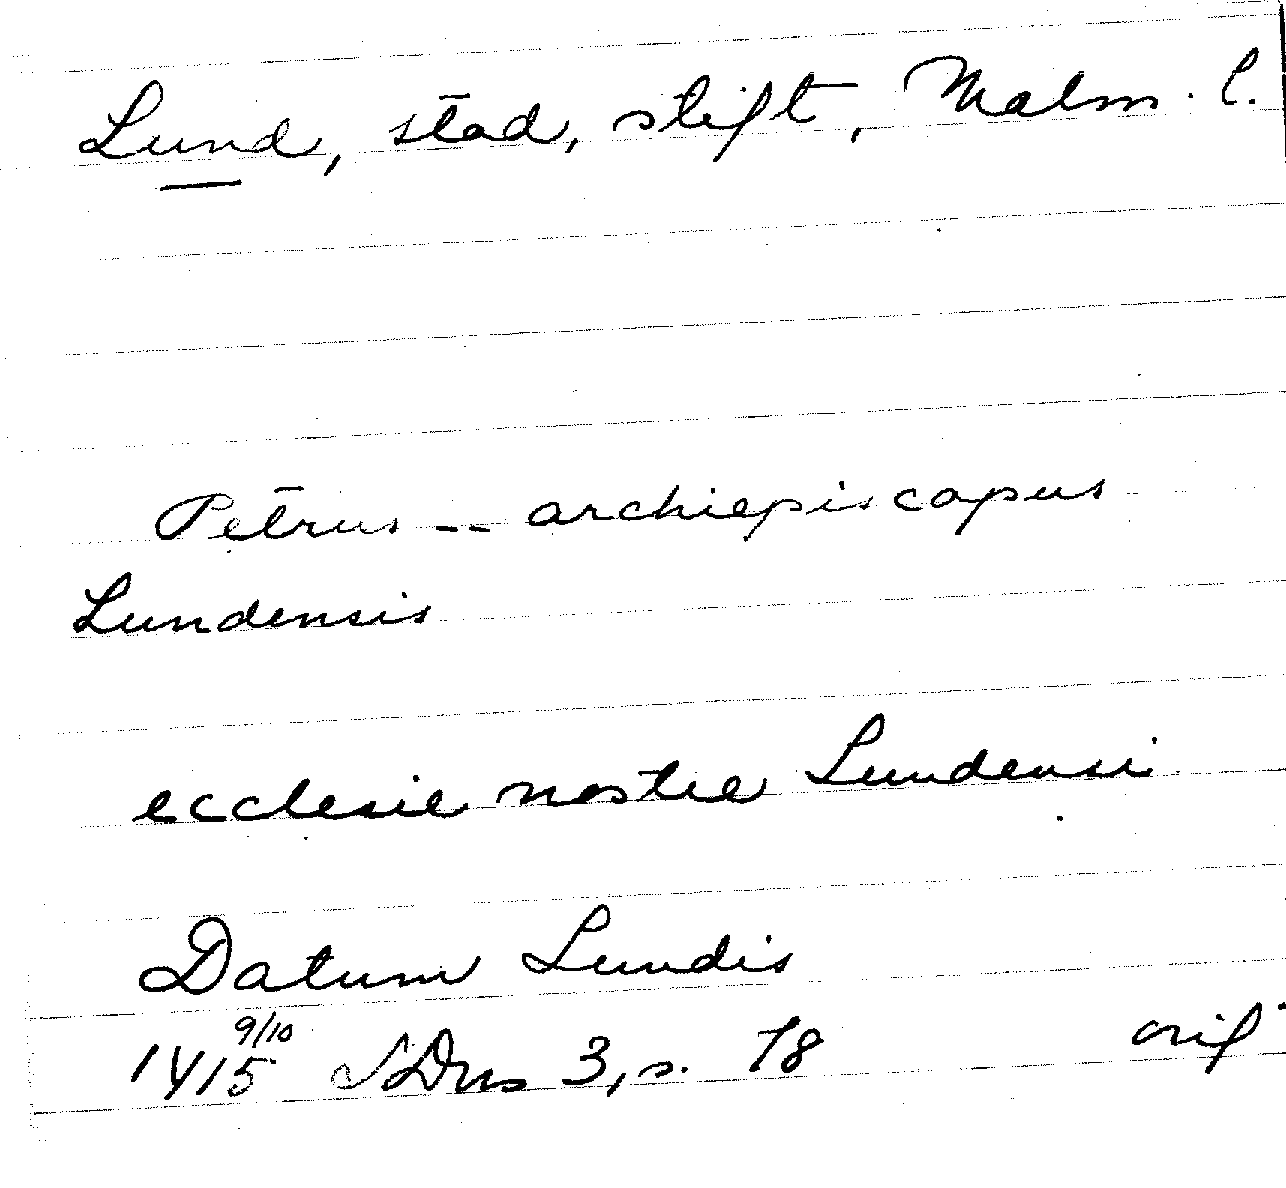 Lund, stad, stift, Malm. l.
Petrus -- archiepiscopus
Lundensis
ecclesie nostre Lundensi
Datum Lundis
1415 9/10 SDns 3, s. 78 orig.